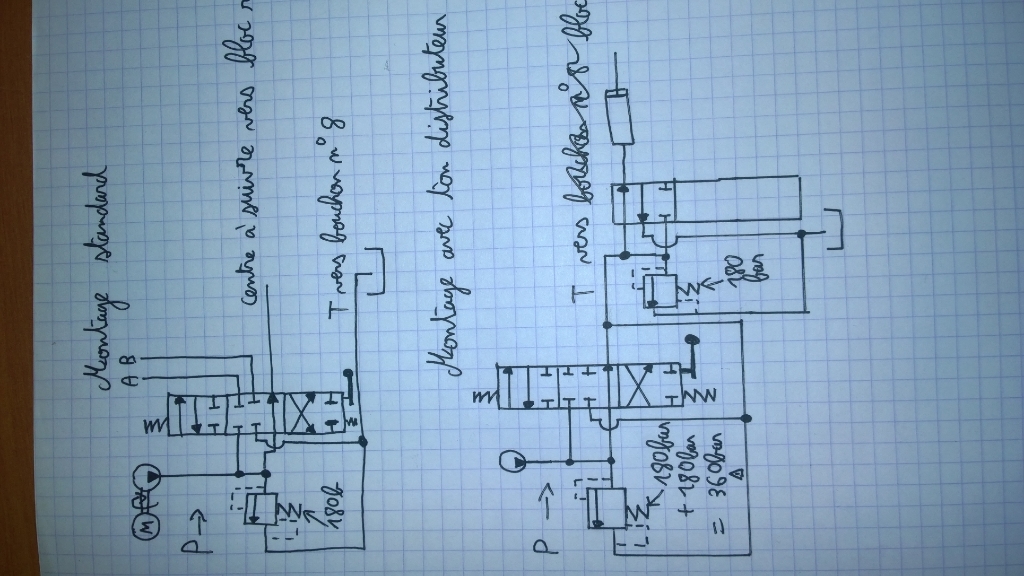 Montage standard
A B
centre à suivre vers bloc
T vers bouchon n° 8
M
P →
180b
Montage avec ton distributeur
T vers bloc
180
bar
P →
180bar
+ 180bar
= 360bar